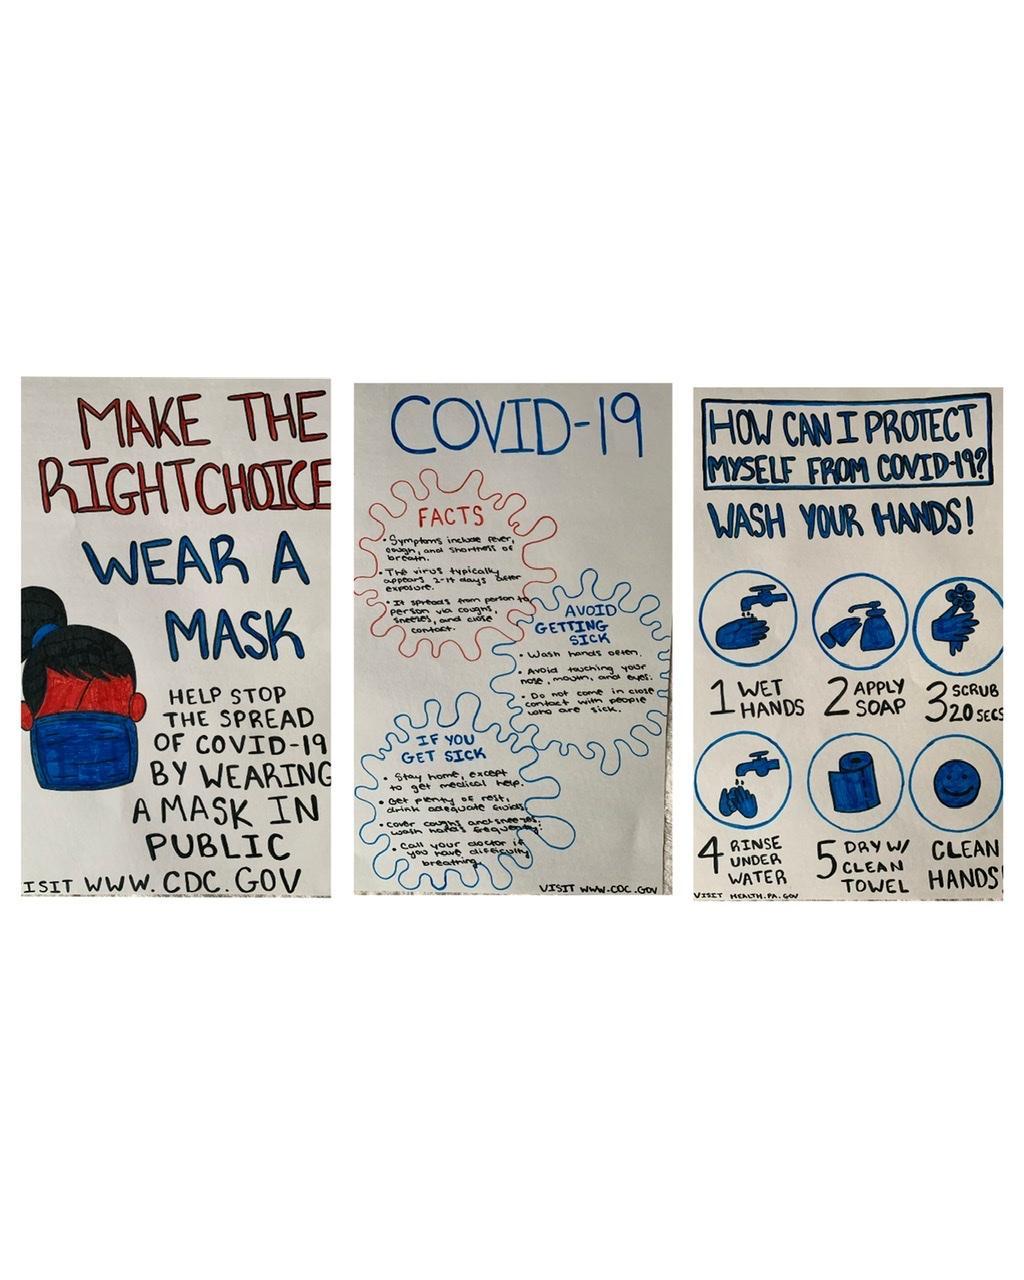 MAKE THE
RIGHT CHOICE
WEAR A
MASK
HELP STOP
THE SPREAD
OF COVID-19
BY WEARING
A MASK IN
PUBLIC
ISIT WWW.CDC.GOV
COVID-19
FACTS
• Symptoms include fever,
cough, and shortness of
breath.
• The virus typically
appears 2-14 days after
exposure.
• It spreads from person to
person via coughs,
sneezes, and close
contact.
AVOID
GETTING
SICK
• Wash hands often.
• Avoid touching your
nose, mouth, and eyes.
• Do not come in close
contact with people
who are sick.
IF YOU
GET SICK
• Stay home, except
to get medical help.
• Get plenty of rest,
drink adequate fluids.
• Cover coughs and sneezes,
wash hands frequently.
• Call your doctor if
you have difficulty
breathing.
VISIT WWW.CDC.GOV
HOW CAN I PROTECT
MYSELF FROM COVID-19?
WASH YOUR HANDS!
1 WET
HANDS
2 APPLY
SOAP
3 SCRUB
20 SECS
4 RINSE
UNDER
WATER
5 DRY W/
CLEAN
TOWEL
CLEAN
HANDS!
VISIT HEALTH.PA.GOV